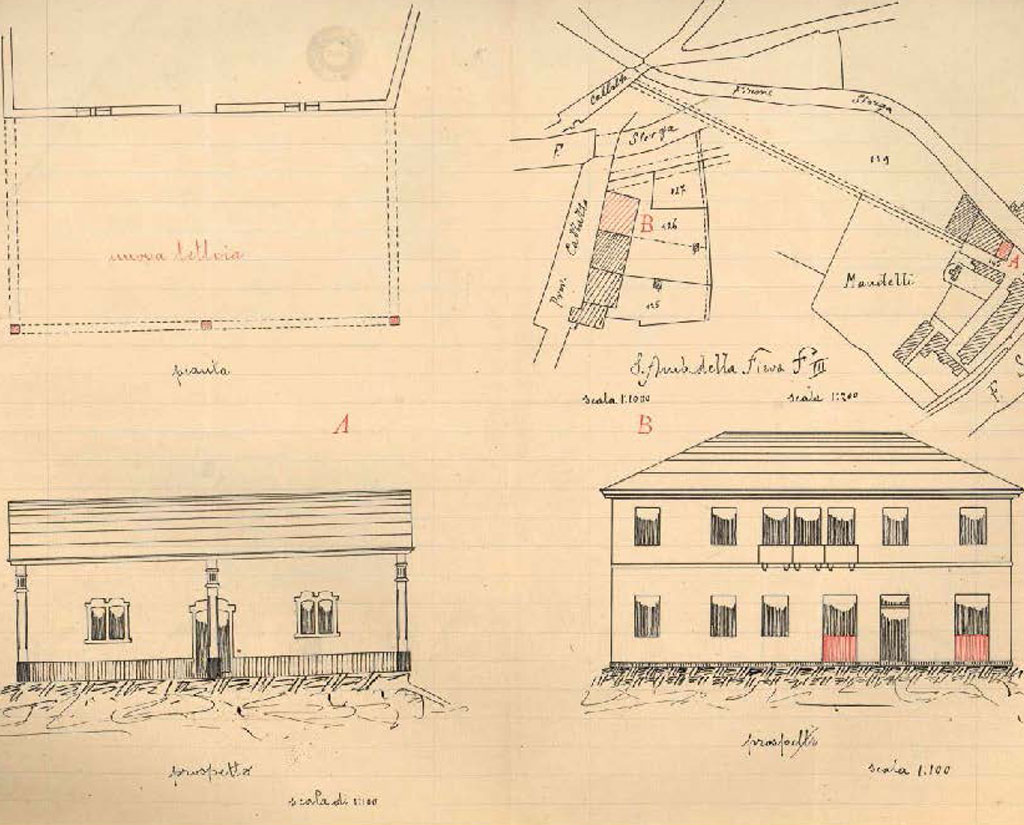 nuova tettoia
pianta
A
prospetto
scala di 1:100
Callalta
Fiume
Storga
F.
Storga
Prov. Callalta
127
B
126
125
119
A
Mandelli
F. S
S. Amb. della Fiera F° III
scala 1:1000
scala 1:200
B
prospetto
scala 1:100